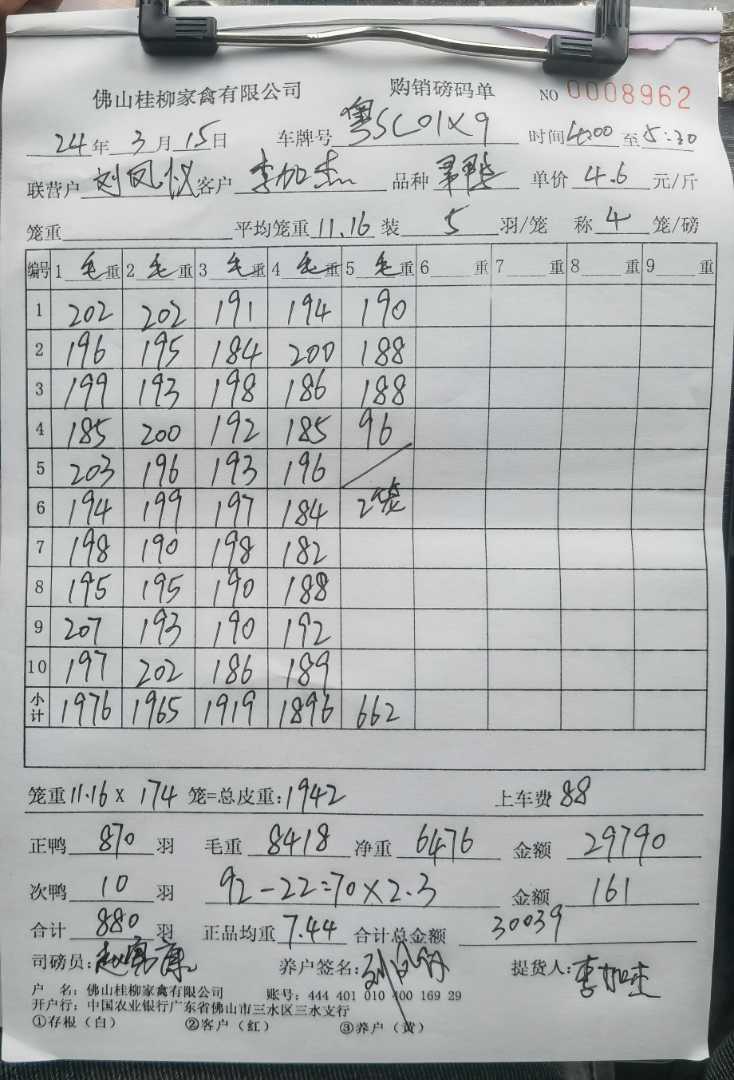 佛山桂柳家禽有限公司 购销磅码单 NO 0008962
24年3月15日 车牌号 粤SC01X9 时间4:00至5:30
联营户 刘凤仪 客户 李加杰 品种 单价 4.6 元/斤
笼重 平均笼重 11.16 装 5 羽/笼 称 4 笼/磅
编号 1 毛重 2 毛重 3 毛重 4 毛重 5 毛重 6 重 7 重 8 重 9 重
1 202 202 191 194 190
2 196 195 184 200 188
3 199 193 198 186 188
4 185 200 192 185 96
5 203 196 193 196
6 194 199 197 184 2笼
7 198 190 198 182
8 195 195 190 188
9 207 193 190 192
10 197 202 186 189
小计 1976 1965 1919 1896 662
笼重11.16 X 174 笼=总皮重:1942 上车费 88
正鸭 870 羽 毛重 8418 净重 6476 金额 29790
次鸭 10 羽 92-22=70×2.3 金额 161
合计 880 羽 正品均重 7.44 合计总金额 30039
司磅员: 养户签名: 提货人:李加杰
户 名:佛山桂柳家禽有限公司 账号:444 401 010 400 169 29
开户行:中国农业银行广东省佛山市三水区三水支行
①存根(白) ②客户(红) ③养户(黄)